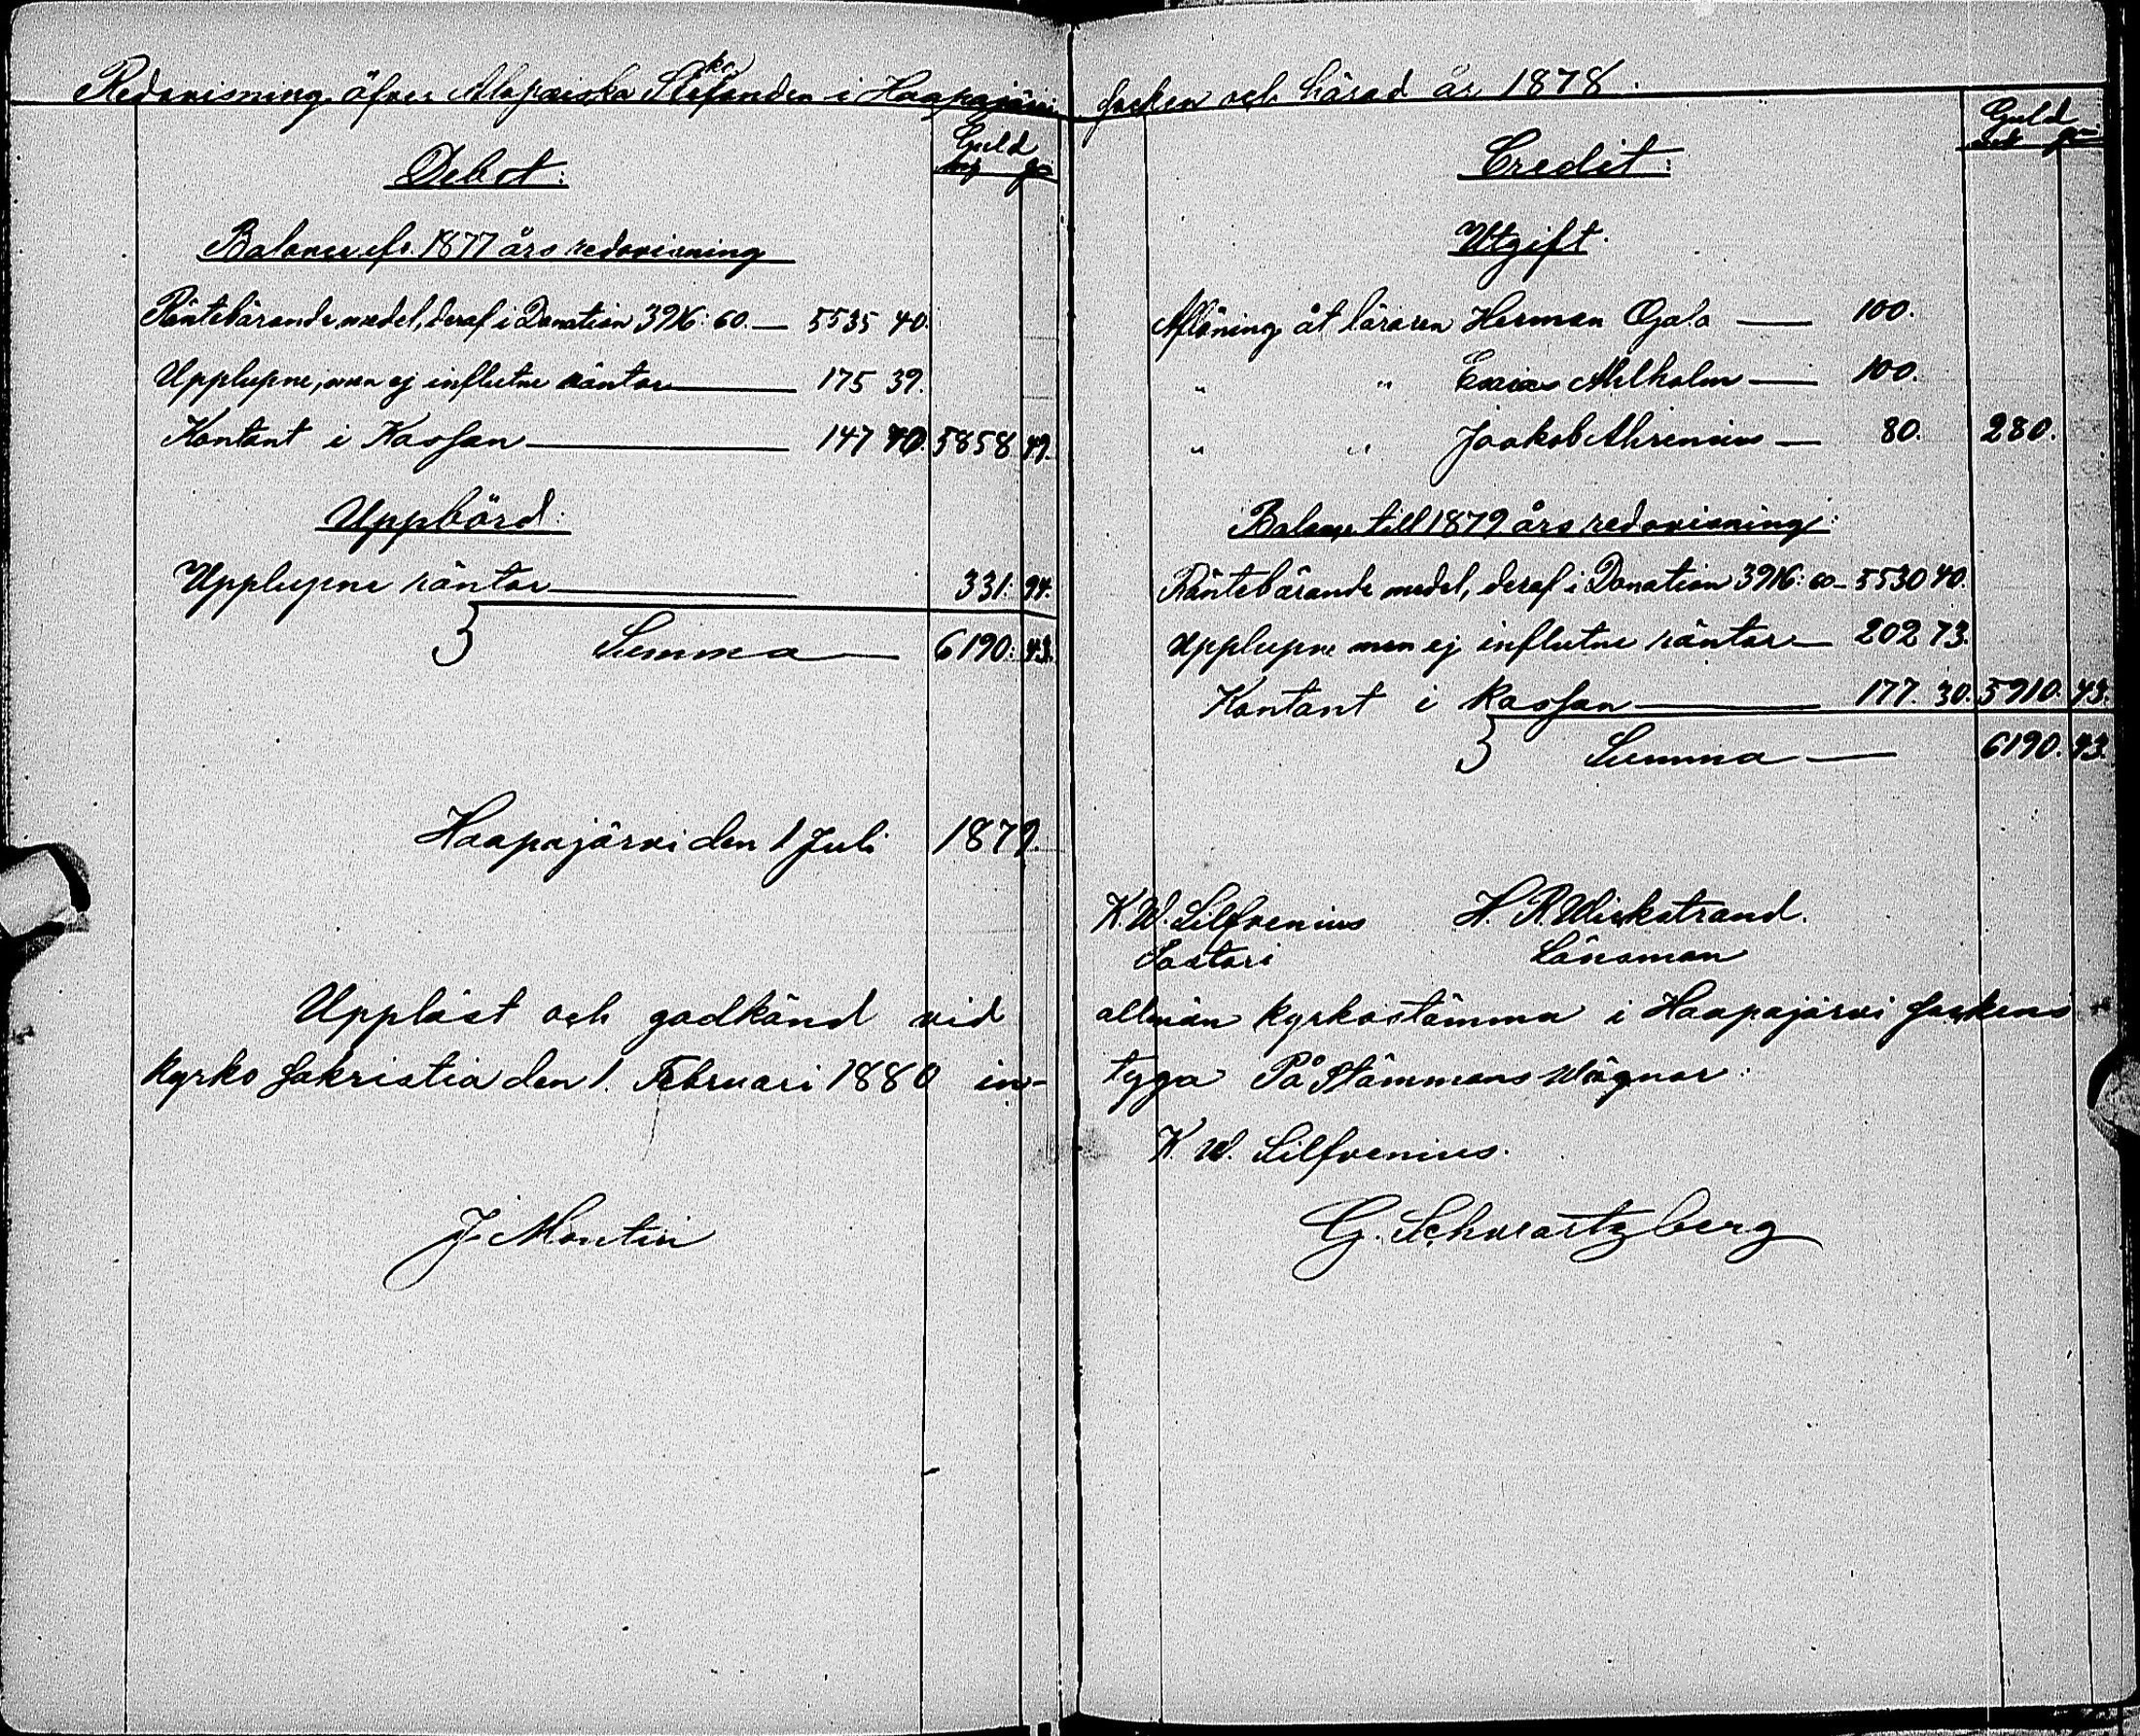 Redovisning öfver Alapaiska Skofonden i Haapajärvi
Debet:
Guld
mg pi
Balance fr. 1877 års redovisning
Räntebärande medel, deraf i Donation 3916: 60. — 5535 40.
Upplupne, men ej influtne räntor — 175 39.
Kontant i Kassan — 147 70. 5858 49.
Uppbörd:
Upplupne räntor — 331. 94.
Summa — 6190: 43.
Haapajärvi den 1 Juli 1879.
Uppläst och godkänd vid
kyrko sakristia den 1. Februari 1880 in-
J Montin
socken och härad år 1878.
Credit:
Guld
Utgift.
Aflöning åt läraren Herman Ojala — 100.
" " Esaias Ahlholm — 100.
" " Jaakob Ahrenius — 80. 280.
Balans till 1879 års redovisning:
Räntebärande medel, deraf i Donation 3916: 60 — 5530 40.
Upplupne men ej influtne räntor — 202 73.
Kontant i kassan — 177. 30. 5910. 43.
Summa — 6190. 43.
K. W. Silfvenius H. R. Wickstrand.
Pastori Länsman
allmän kyrkostämma i Haapajärvi sockens
tyga På Stämmans wägnar:
K. W. Silfvenius.
G. Schwartzberg